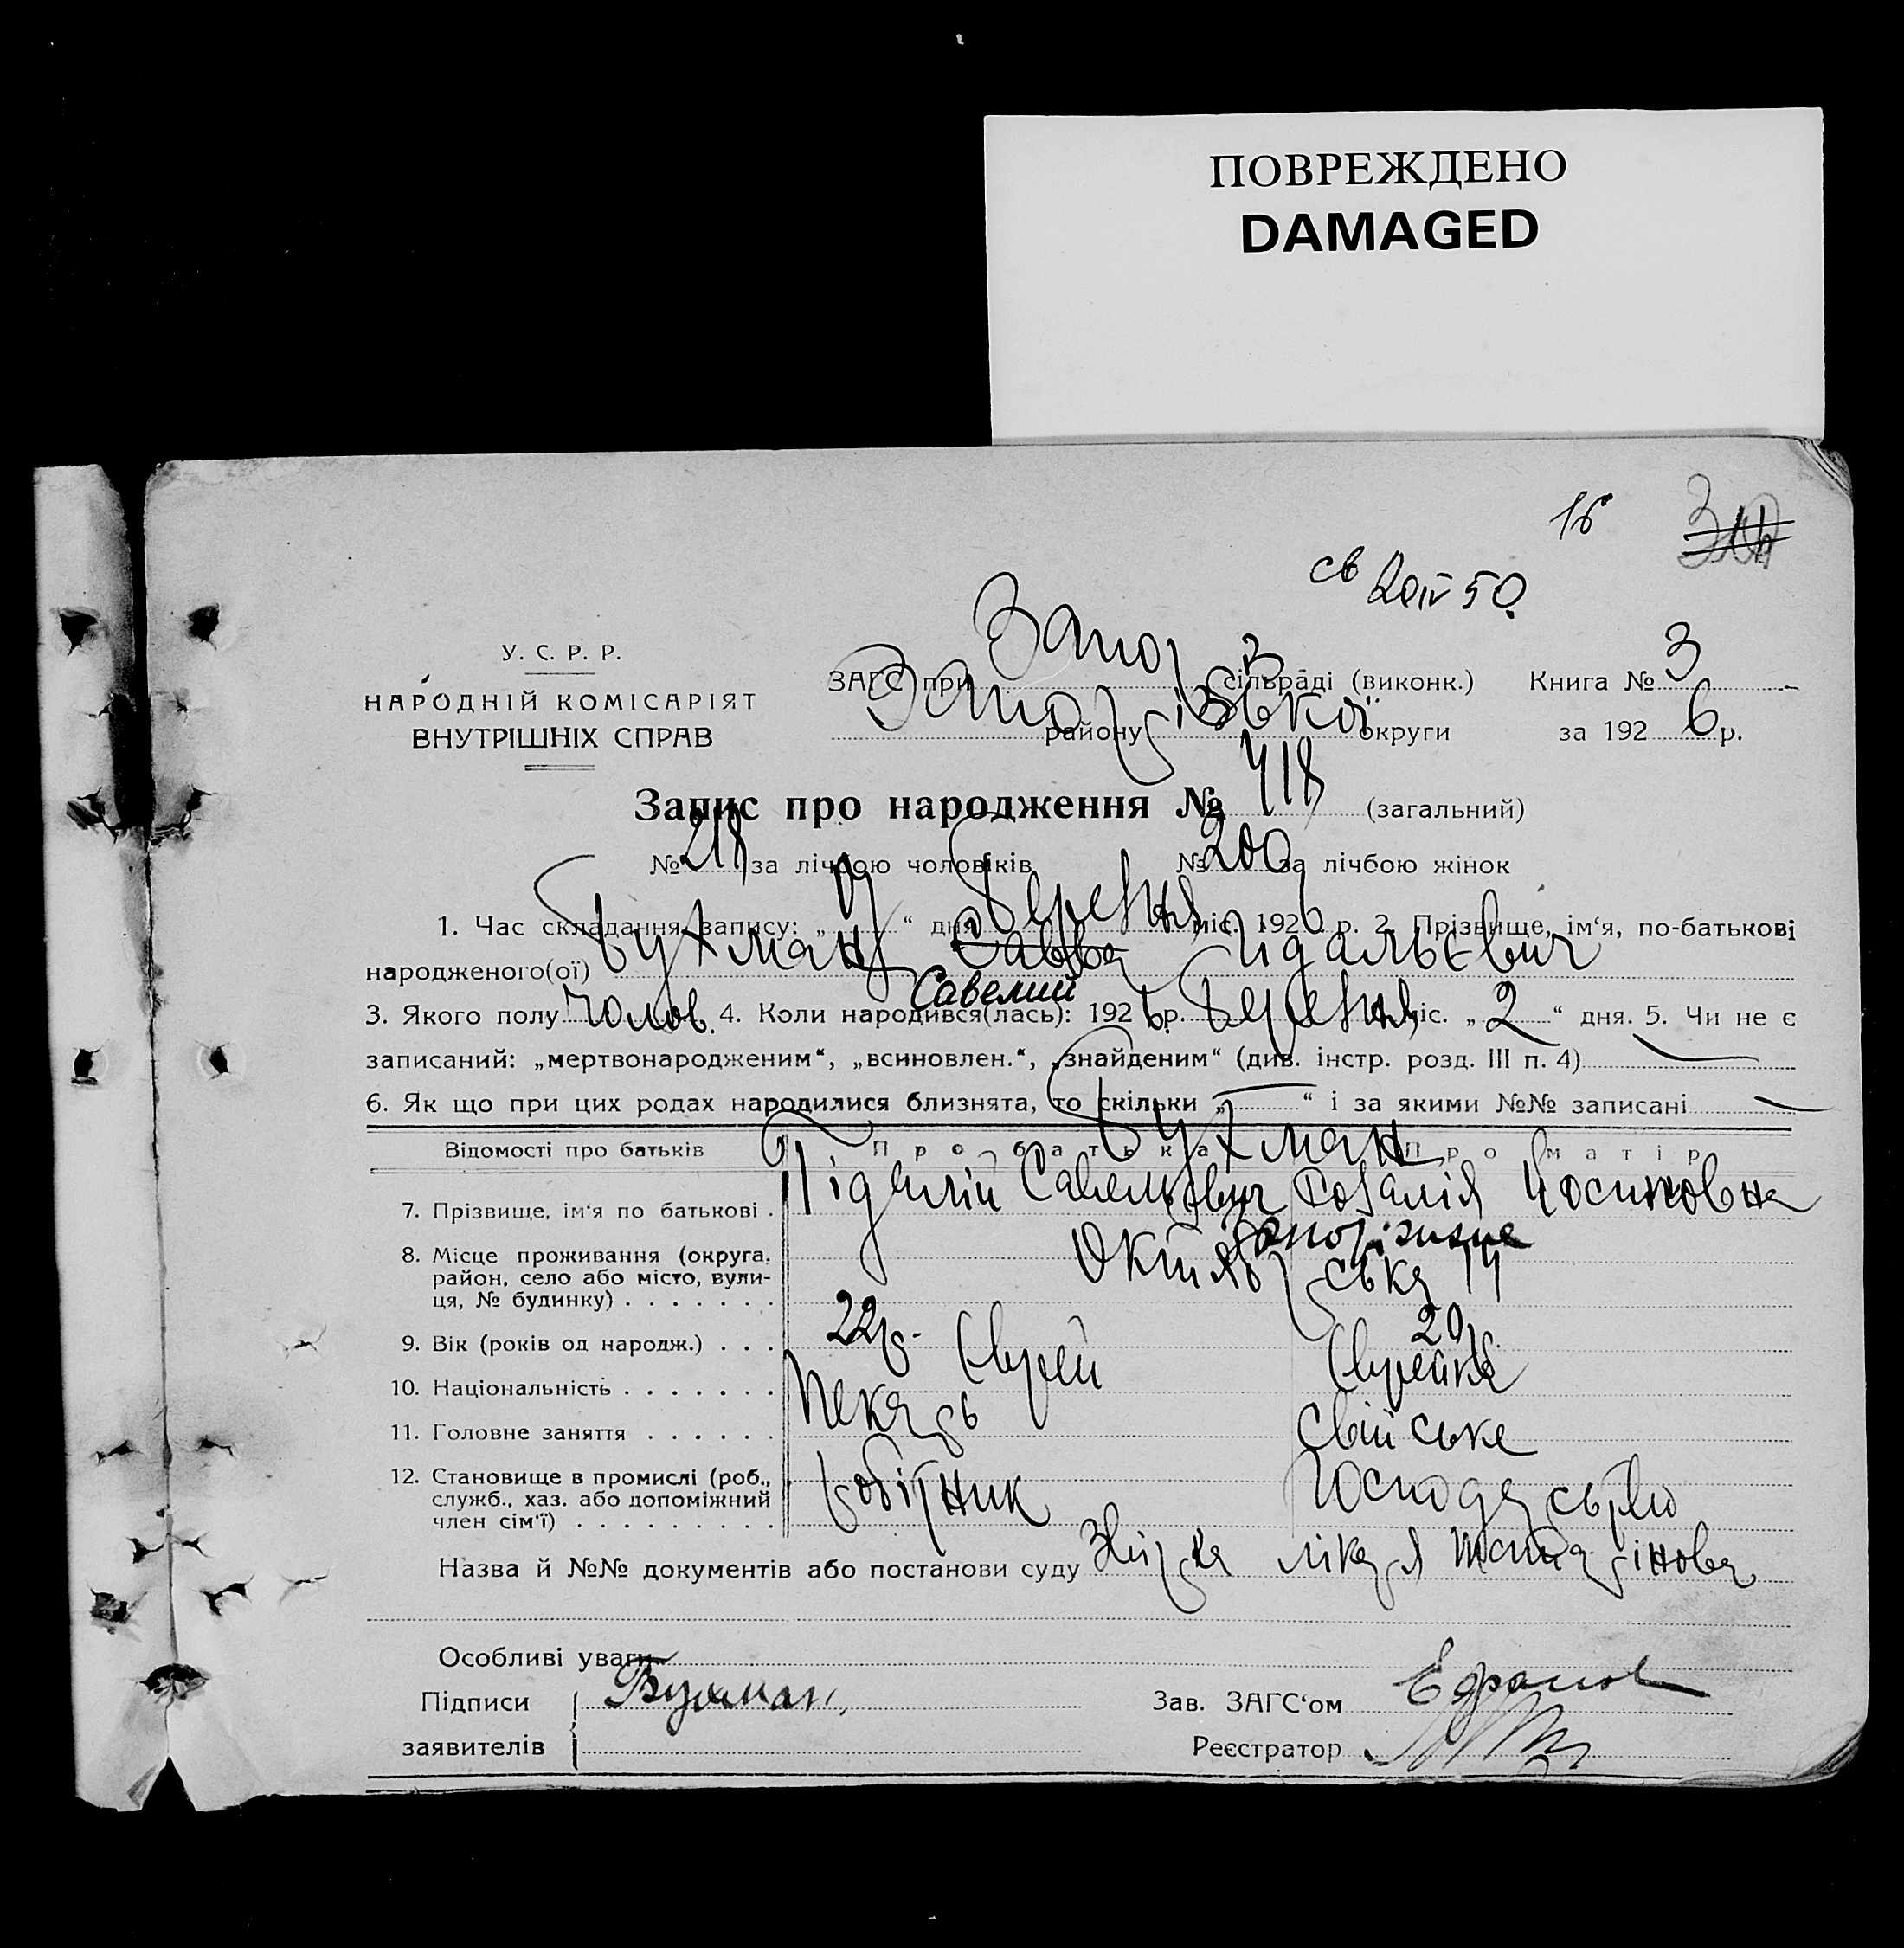 ПОВРЕЖДЕНО
DAMAGED
16
св 20 IV 50.
У. С. Р. Р.
НАРОДНІЙ КОМІСАРІЯТ
ВНУТРІШНІХ СПРАВ
ЗАГС при Запор сільраді (виконк.) Книга № 3
району Запорізької округи за 1926 р.
Запис про народження № 418 (загальний)
№ 218 за лічбою чоловіків № 200 за лічбою жінок
1. Час складання запису: „ 9 “ дня березня міс. 1926 р. 2. Прізвище, ім'я, по-батькові
народженого(ої) Бухман Савва Идальєвич
Савелий
3. Якого полу чолов. 4. Коли народився(лась): 1926 р. березня міс. „ 2 “ дня. 5. Чи не є
записаний: „мертвонародженим“, „всиновлен.“, „знайденим“ (див. інстр. розд. III п. 4)
6. Як що при цих родах народилися близнята, то скільки „ “ і за якими №№ записані
Бухман
Відомості про батьків Про батька Про матір
7. Прізвище, ім'я по батькові . Ідалій Савельєвич Розалія Йосиповна
8. Місце проживання (округа, район, село або місто, вули-ця, № будинку) . . . . . . . Запоріжжя
Октябрська 14
9. Вік (років од народж.) . . . 22 р. 20 р.
10. Національність . . . . . . . Єврей Єврейка
11. Головне заняття . . . . . . Пекарь свійське
12. Становище в промислі (роб., служб., хаз. або допоміжний член сім'ї) . . . . . . . . . робітник господарство
Назва й №№ документів або постанови суду лікаря
Особливі уваги
Підписи Бухман
заявителів
Зав. ЗАГС'ом
Реєстратор